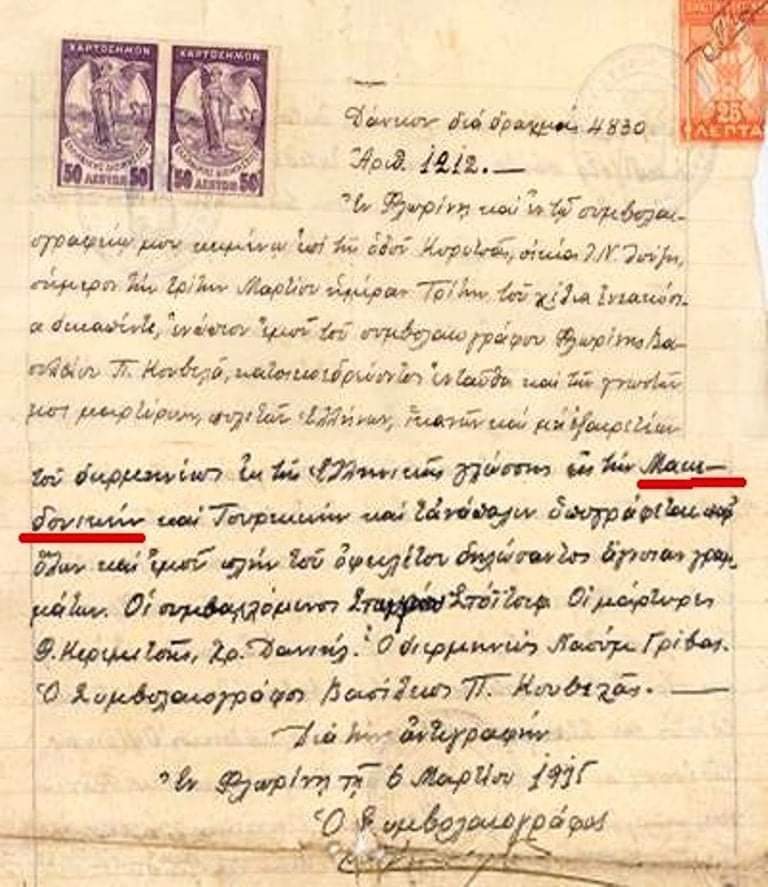 ΧΑΡΤΟΣΗΜΟΝ ΧΑΡΤΟΣΗΜΟΝ
50 ΛΕΠΤΩΝ 50 50 ΛΕΠΤΩΝ 50
25
ΛΕΠΤΑ
Δάνειον διά δραχμάς 4830
Ἀριθ. 1212.—
Ἐν Φλωρίνῃ καὶ ἐν τῷ συμβολαι-
ογραφείῳ μου κειμένῳ ἐπὶ τῆς ὁδοῦ Κορυτσᾶς, οἰκία
σήμερον τὴν τρίτην Μαρτίου ἡμέραν Τρίτην τοῦ χίλια ἐννεακόσι-
α δεκαπέντε, ἐνώπιον ἐμοῦ τοῦ συμβολαιογράφου Φλωρίνης Βα-
σιλείου Π. Κουβελᾶ, κατοικοεδρεύοντος ἐνταῦθα καὶ τῶν γνωστῶν
μοι μαρτύρων, πολιτῶν Ἑλλήνων, ἱκανῶν καὶ μὴ ἐξαιρετέων
τοῦ διερμηνέως ἐκ τῆς Ἑλληνικῆς γλώσσης εἰς τὴν Μακε-
δονικήν καὶ Τουρκικήν καὶ τἀνάπαλιν ὑπογράφεται παρ'
ὅλων καὶ ἐμοῦ πλὴν τοῦ ὀφειλέτου δηλώσαντος ἄγνοιαν γραμ-
μάτων. Οἱ συμβαλλόμενοι Στόιτσεφ Οἱ μάρτυρες
Θ. Κεριμιτσῆς, Χρ. Δανιήλ. Ὁ διερμηνεύς Νασούμ Γρίβας.
Ὁ Συμβολαιογράφος Βασίλειος Π. Κουβελᾶς.—
Διὰ τὴν ἀντιγραφήν
Ἐν Φλωρίνῃ τῇ 6 Μαρτίου 1915
Ὁ Συμβολαιογράφος